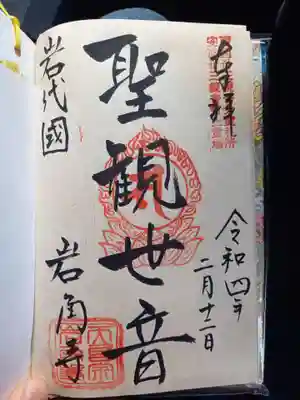 奉拝
令和四年
二月十二日
聖観世音
岩代國
岩角寺